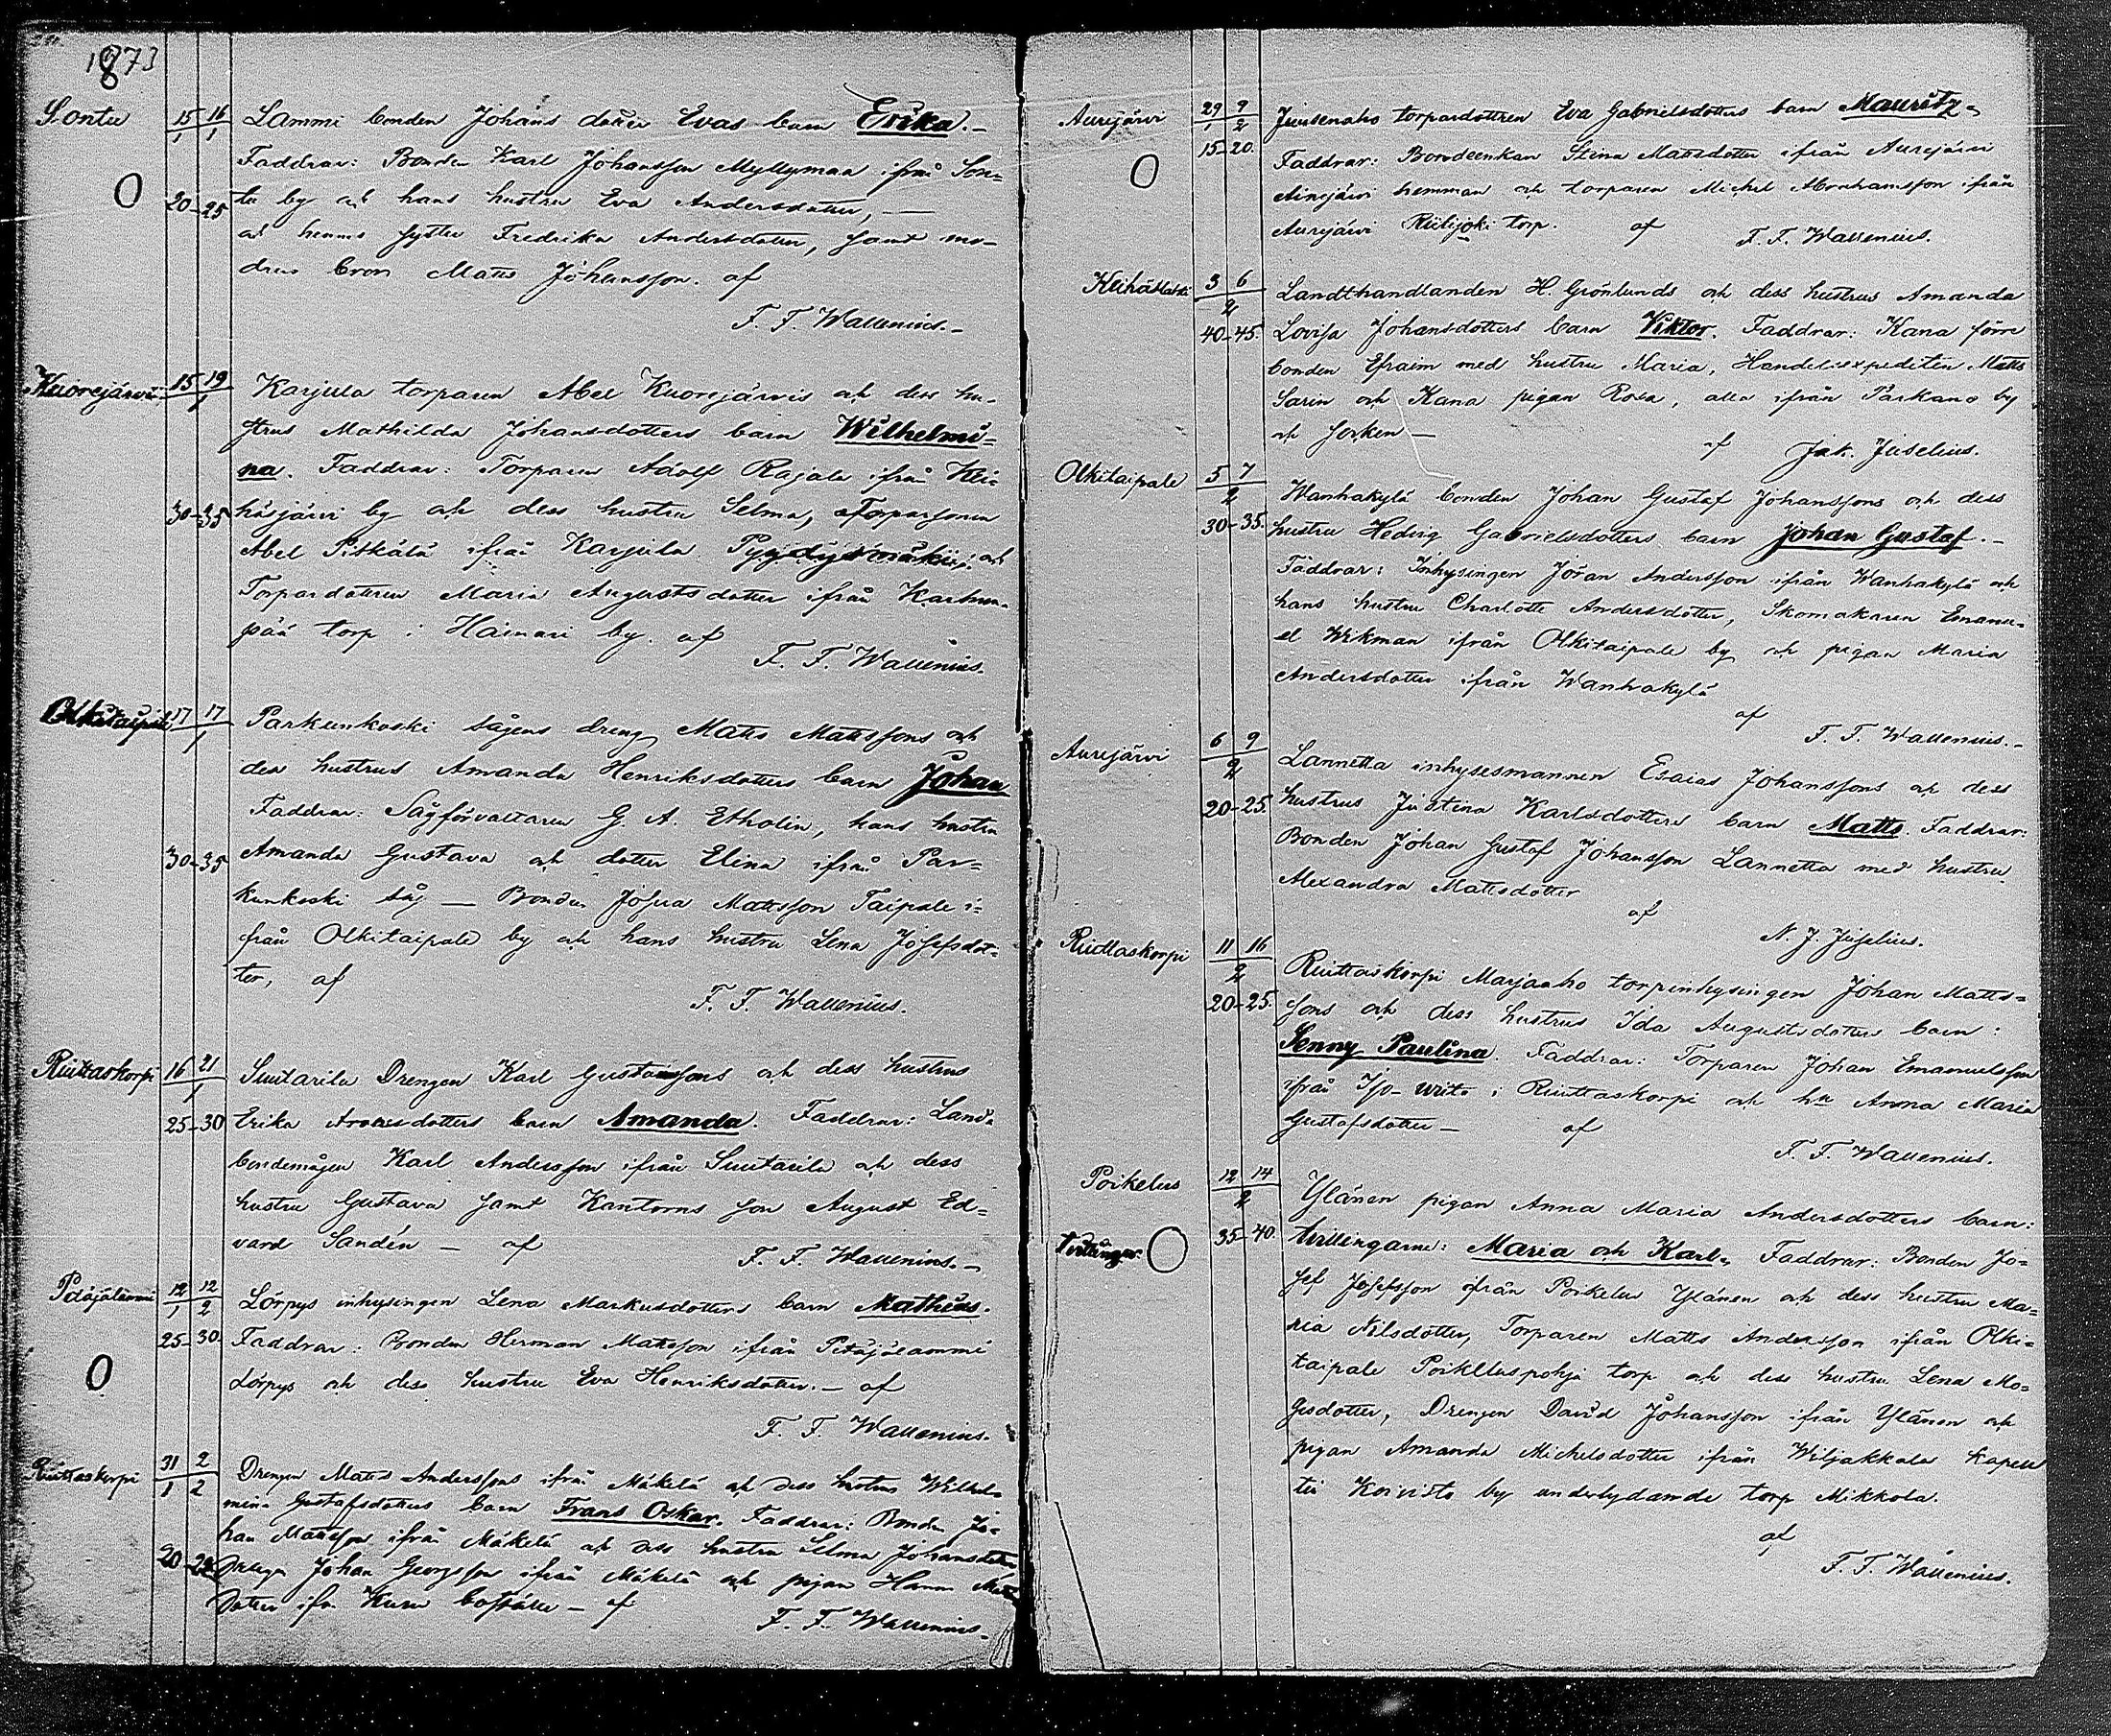 1873
Sontu 15/1 16/1 Lammi bonden Johans dotter Evas barn Erika.-
Faddrar: Bonden Karl Johansson Myllymaa ifrån Son-
20-25 tu by och hans hustru Eva Andersdotter, —
O
och hennes syster Fredrika Andersdotter, samt mo-
drens bror Matts Johansson. af
F. F. Wallenius.-
Kuorejärvi 15/1 19/1 Karjula torparen Abel Kuorejärvis och dess hu-
strus Mathilda Johansdotters barn Wilhelmi-
na. Faddrar: Torparen Adolf Rajala ifrån Kei-
30-35 häsjärvi by och dess hustru Selma, Torparsonen
Abel Pitkälä ifrån Karjula Pyydysmäki, och
Torpardottren Maria Augustsdotter ifrån
pää torp i Hainari by. af
F. F. Wallenius.
Olkitaipale 17/1 17/1 Parkunkoski sågens dreng Matts Mattssons och
dess hustrus Amanda Henriksdotters barn Johan
Faddrar: Sågförvaltaren G. A. Etholin, hans hustru
30-35 Amanda Gustava och dotter Elina ifrån Par-
kunkoski såg — Bonden Josua Mattsson Taipale i-
från Olkitaipale by och hans hustru Lena Josefsdot-
ter, af
F. F. Wallenius.
Riuttaskorpi 16/1 21/1 Suutarila Drengen Karl Gustafssons och dess hustrus
25-30 Erika Aronsdotters barn Amanda. Faddrar: Land-
bondemågen Karl Andersson ifrån Suutarila och dess
hustru Gustava samt Kantorns son August Ed-
vard Sandén — af
F. F. Wallenius.-
Petäjälammi 12/1 12/2 Lörpys inhysingen Lena Markusdotters barn Mathias.
25-30 Faddrar: Bonden Herman Mattsson ifrån Petäjälammi
O
Lörpys och dess hustru Eva Henriksdotter.- af
F. F. Wallenius.
Riuttaskorpi 31/1 2/2 Drengen Matts Anderssons ifrån Mäkelä och dess hustrus Wilhel-
mina Gustafsdotters barn Frans Oskar. Faddrar: Bonden Jo-
han Mattsson ifrån Mäkelä och dess hustru Selma Johansdotter
20- Drengen Johan Georgsson ifrån Mäkelä och pigan Hanna Matts
dotter ifrån Kuru — af
F. F. Wallenius.
Aurejärvi 29/1 9/2 Juusenaho torpardottren Eva Gabrielsdotters barn Mauritz.
15-20. Faddrar: Bondeenkan Stina Mattsdotter ifrån Aurejärvi
O
Aurejärvi hemman och torparen Michel Abrahamsson ifrån
Aurejärvi Riihijoki torp. af F. F. Wallenius.
3 6/2 Landthandlanden H. Grönlunds och dess hustrus Amanda
40-45. Lovisa Johansdotters barn Viktor. Faddrar: Kana förre
bonden Efraim med hustru Maria, Handelsexpediten Matts
Sarin och Kana pigan Rosa, alla ifrån Parkano by
och socken — af Jak. Juselius.
Olkitaipale 5 7/2 Wanhakylä bonden Johan Gustaf Johanssons och dess
30-35. hustru Hedvig Gabrielsdotters barn Johan Gustaf.-
Faddrar: Inhysingen Göran Andersson ifrån Wanhakylä och
hans hustru Charlotte Andersdotter, Skomakaren Emanu-
el Wikman ifrån Olkitaipale by och pigan Maria
Andersdotter ifrån Wanhakylä
af
F. F. Wallenius.-
Aurejärvi 6 9/2 Lannetta inhysesmannen Esaias Johanssons och dess
20-25. hustrus Justina Karlsdotters barn Matts. Faddrar:
Bonden Johan Gustaf Johansson Lannetta med hustru
Alexandra Mattsdotter
af
N. J. Juselius.
Riuttaskorpi 11 16/2 Riuttaskorpi Marjaaho torpinhysingen Johan Matts-
20-25. sons och dess hustrus Ida Augustsdotters barn:
Jenny Paulina. Faddrar: Torparen Johan Emanuelsson
ifrån Iso- i Riuttaskorpi och hu Anna Maria
Gustafsdotter — af
F. F. Wallenius.
Poikelus 12 14/2 Ylänen pigan Anna Maria Andersdotters barn:
Tvillingar. O 35-40. tvillingarne: Maria och Karl. Faddrar: Bonden Jo-
sef Josefsson ifrån Poikelus Ylänen och dess hustru Ma-
ria Nilsdotter, Torparen Matts Andersson ifrån Olki-
taipale Poikeluspohja torp och dess hustru Lena Mo-
sesdotter, Drengen David Johansson ifrån Ylänen och
pigan Amanda Michelsdotter ifrån Wiljakkala kapell
till Koivisto by underlydande torp Mikkola.
af
F. F. Wallenius.